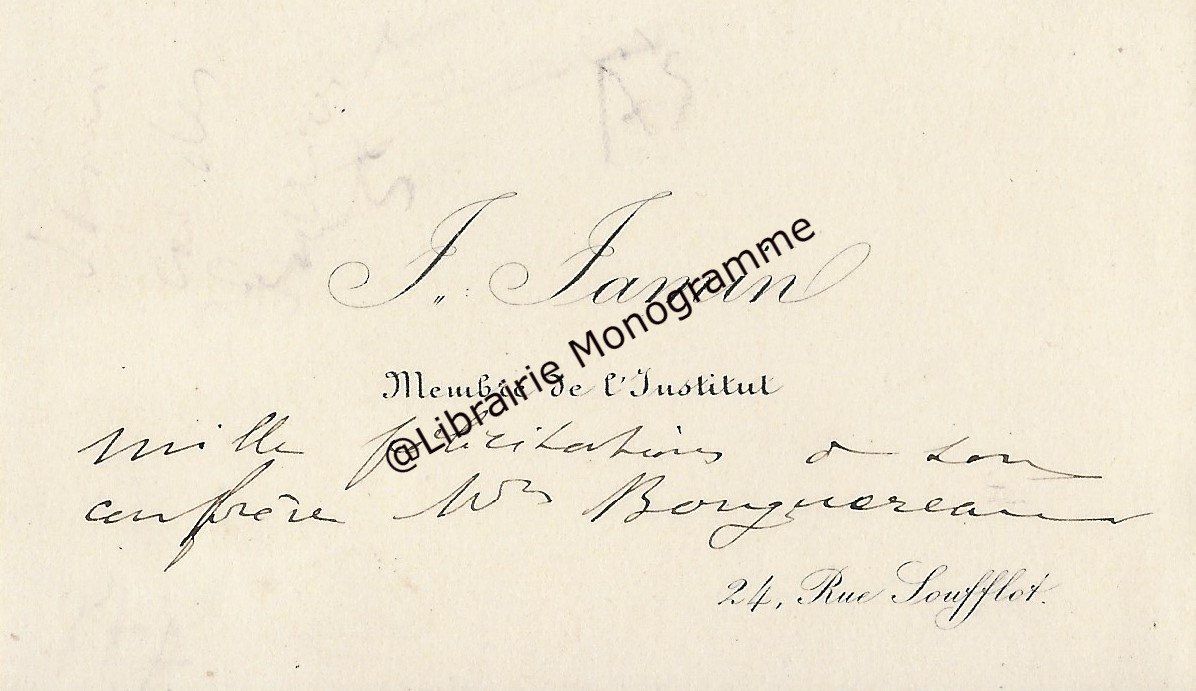 J. Jamin
@Librairie Monogramme
Membre de l'Institut
mille félicitations a son
confrère Bouguereau
24, Rue Soufflot.